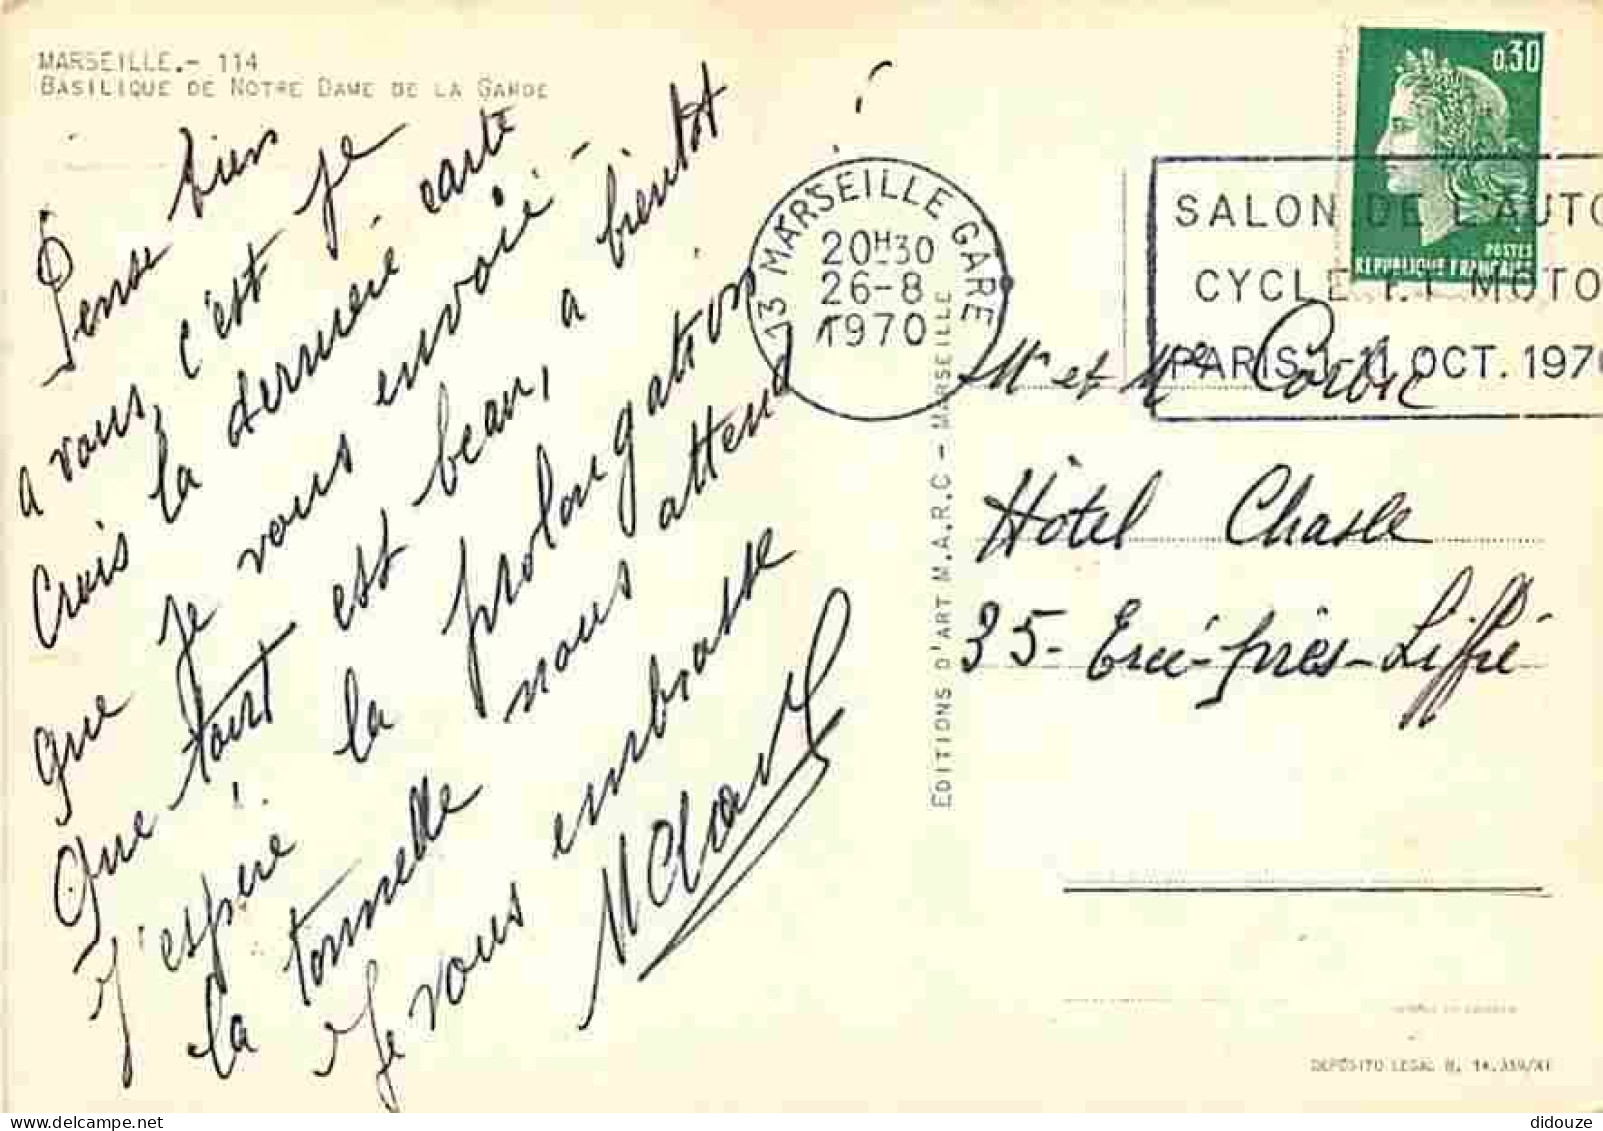 MARSEILLE.- 114
BASILIQUE DE NOTRE DAME DE LA GARDE
Pense bien
a vous, c'est je
Crois la derniére carte
que je vous envoié -
Que tout est beau, a bientot
J'espére la prolongation
la tonnelle nous attend !
Je vous embrasse
13 MARSEILLE GARE
20H30
26-8
1970
0,30
POSTES
REPUBLIQUE FRANÇAISE
SALON DE L'AUTO
CYCLE ET MOTO
PARIS 1-11 OCT. 1970
Mr et Me
Hôtel Chasle
35- Ercé-près-Liffré
EDITIONS D'ART M.A.R.C - MARSEILLE
DEPÓSITO LEGAL B.
didouze